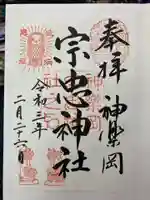 奉拝 神楽岡
宗忠神社
令和三年
二月二十六日